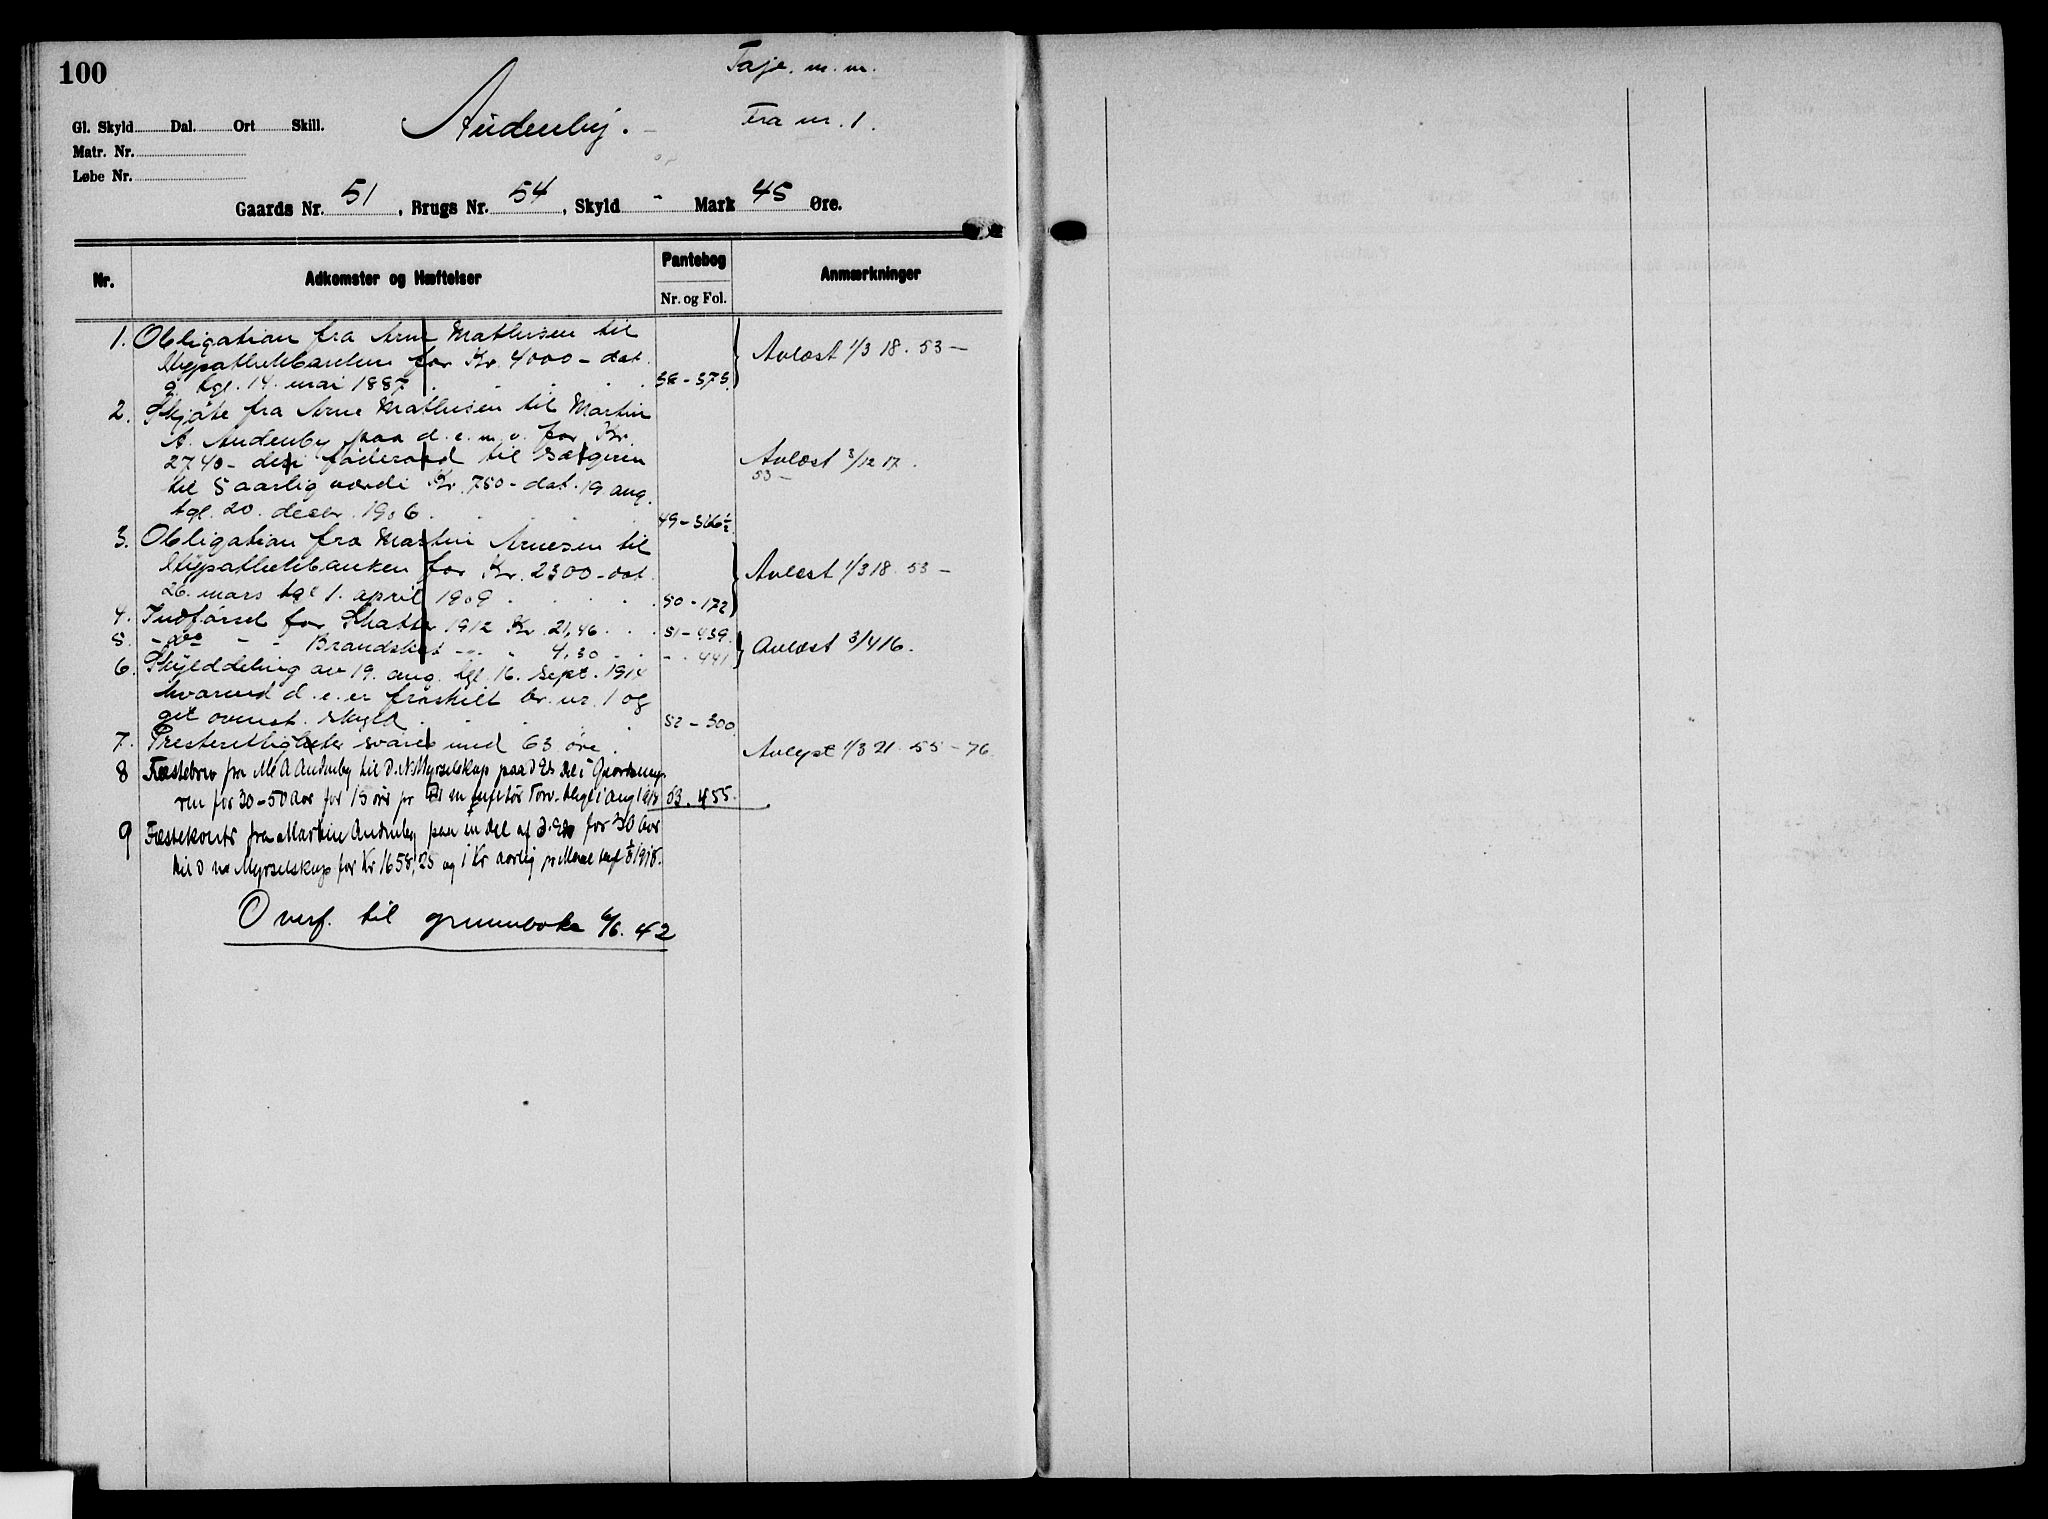 100
Taje. m. m.
Gl. Skyld Dal. Ort Skill.
Audenby.
Fra nr. 1.
Matr. Nr.
Løbe Nr.
Gaards Nr. 51, Brugs Nr. 54, Skyld - Mark 45 Øre.
Nr. Adkomster og Hæftelser Pantebog Anmærkninger
Nr. og Fol.
1. Obligation fra Arne Mathisen til
Hypothekbanken for Kr. 4000 - dat. Avlæst 1/3 18. 53 -
g. tgl. 14. mai 1887. 38 - 373.
2. Skjøte fra Arne Mathisen til Martin
A. Audenby paa d. e. m. v. for Kr.
2740 - føderaad til Sælgeren Avlæst 3/12 17.
til 5 aarlig værdi Kr. 750 - dat. 19 aug. 53 -
tgl. 20. decbr. 1906. 49 - 366½
3. Obligation fra Martin Arnesen til
Hypothekbanken for Kr. 2300 - dat. Avlæst 1/3 18. 53 -
26. mars tgl 1. april 1909. 50 - 172
4. Indførsel for Skatter 1912 Kr. 21,46. 51 - 439.
5. - do - - Brandskat - - - 4,30 - - - . 441 Avlæst 3/4 16.
6. Skylddeling av 19. aug. tgl. 16. sept. 1914
hvorved d. e. er fraskilt br. nr. 1 og
git ovenst. skyld. 52 - 300.
7. Presterettigheter svares med 63 øre. Avlyst 1/3 21. 55 - 76.
8 Fæstebrev fra M A Audenby til D. N Myrselskap paa D Es del i
ren for 30 - 50 Aar for 15 øre pr Torv. tlyst i aug 1918 53. 455.
9 Fæstekontr fra Martin Audenby paa en del af d. E. for 30 Aar
til D no Myrselskap for Kr 1658,25 og 1 Kr aarlig pr Maal 1918.
Overf. til grunnboka 6/6. 42